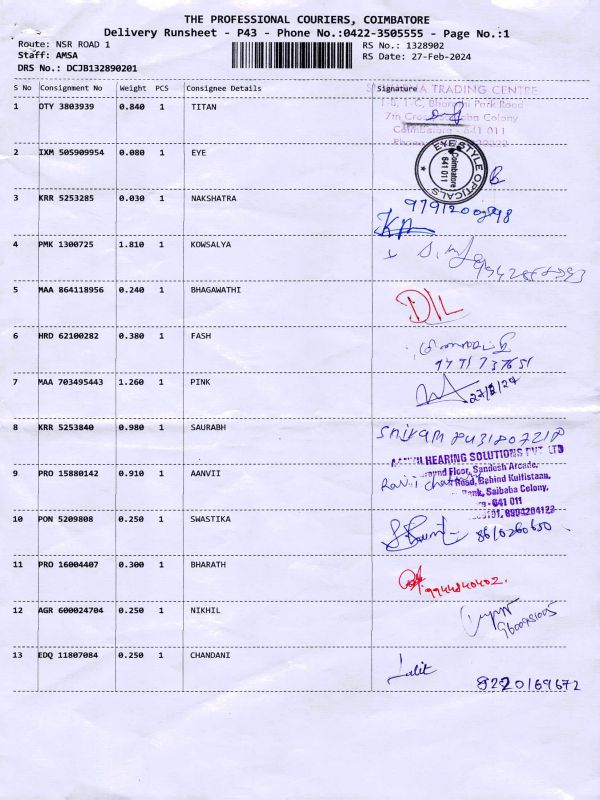 THE PROFESSIONAL COURIERS, COIMBATORE
Delivery Runsheet - P43 - Phone No.:0422-3505555 - Page No.:1
Route: NSR ROAD 1 RS No.: 1328902
Staff: AMSA RS Date: 27-Feb-2024
DRS No.: DCJB132890201
S No Consignment No Weight PCS Consignee Details Signature
TRADING CENTRE
Park Road
1 DTY 3803939 0.840 1 TITAN
7th Colony
Coimbatore - 641 011
2 IXM 505909954 0.080 1 EYE
EYE STYLE OPTICALS
Coimbatore
641 011
3 KRR 5253285 0.030 1 NAKSHATRA
4 PMK 1300725 1.810 1 KOWSALYA
5 MAA 864118956 0.240 1 BHAGAWATHI
DIL
6 HRD 62100282 0.380 1 FASH
7 MAA 703495443 1.260 1 PINK
27/2/24
8 KRR 5253840 0.980 1 SAURABH
HEARING SOLUTIONS PVT LTD
Floor, Sandesh Arcade,
9 PRO 15880142 0.910 1 AANVII
Road, Behind Kulfistaan,
Bank, Saibaba Colony,
641 011
8904204123
10 PON 5209808 0.250 1 SWASTIKA
8610260650
11 PRO 16004407 0.300 1 BHARATH
9944840402.
12 AGR 600024704 0.250 1 NIKHIL
13 EDQ 11807084 0.250 1 CHANDANI
Lalit
8220169672